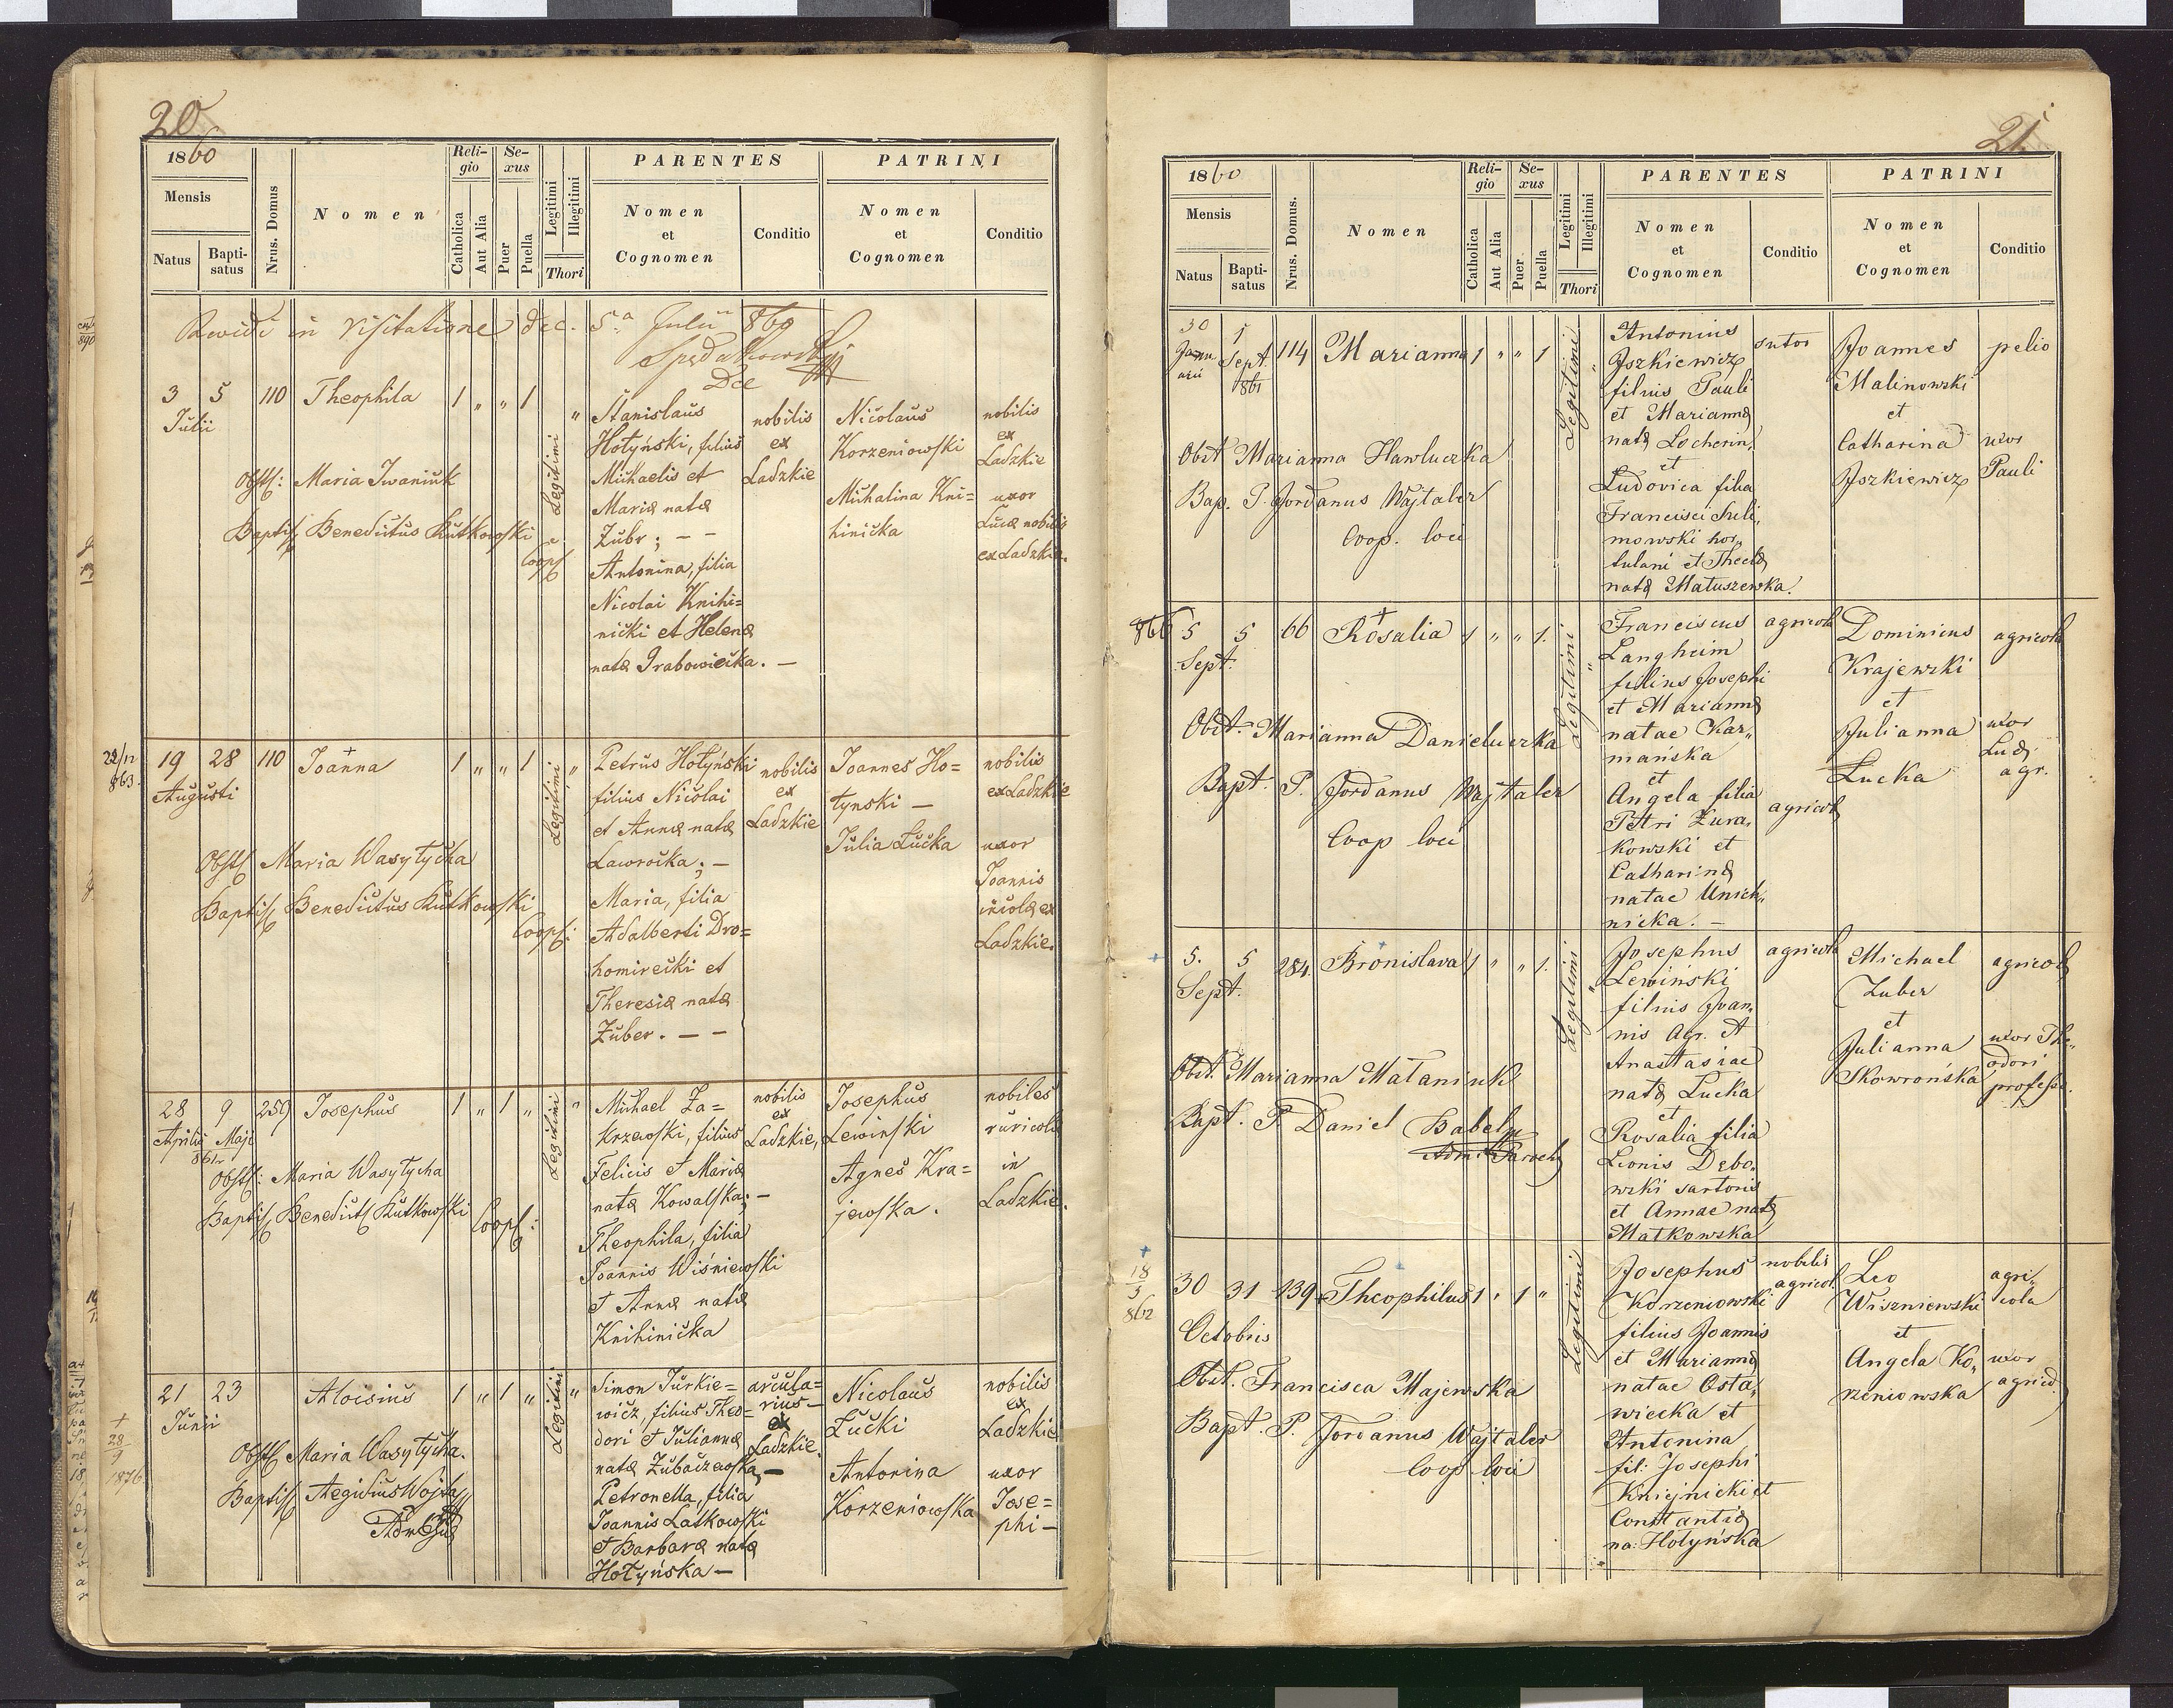 20
1860
Mensis
Natus
Baptisatus
Nrus. Domus
Nomen
Religio
Catholica
Aut Alia
Sexus
Puer
Puella
Legitimi
Illegitimi
Thori
PARENTES
Nomen et Cognomen
Conditio
PATRINI
Nomen et Cognomen
Conditio
in visitatione dec. 5ª Julii 860
Dec
3 5 110 Theophila 1 " " 1 "
Julii
Legitimi
Obst: Maria Iwaniuk
Baptis. Benedictus Kutkowski
Coop.
Stanislaus
Hołyński, filius
Michaelis et
Mariæ natæ
Zubr; – –
Antonina, filia
Nicolai Knihi=
nicki et Helenæ
natæ Grabowiecka. –
nobilis
ex
Ladzkie
Nicolaus
Korzeniowski
Michalina Kni=
hinicka
nobilis
ex
Ladzkie
uxor
Lucæ nobilis
ex Ladzkie.
28/12
863.
19 28 110 Joanna 1 " " 1 "
Augusti
Legitimi
Obst. Maria Wasylycha
Baptis. Benedictus Kutkowski
Coop:
Petrus Hołyński
filius Nicolai
et Annæ natæ
Laworocka; –
Maria, filia
Adalberti Dro=
homirecki et
Theresiæ natæ
Zuber. – –
nobilis
ex
Ladzkie
Joannes Ho=
łynski –
Julia Łucka
nobilis
ex Ladzkie
uxor
Joannis
incolæ ex
Ladzkie.
28 9 259 Josephus 1 " 1 " "
Aprilis Maji
861
Legitimi
Obst: Maria Wasylycha
Baptis. Benedict. Kutkowski
Coop:
Michael Za=
krzewski, filius
Felicis et Mariæ
natæ Kowalska; –
Theophila, filia
Joannis Wiśniewski
et Annæ natæ
Knihinicka
nobilis
ex
Ladzkie,
Josephus
Lewinski
Agnes Kra=
jewska.
nobiles
ruricolæ
in
Ladzkie.
†
28
9
1876
21 23 Aloisius 1 " 1 " "
Junii
Legitimi
Obst. Maria Wasylycha.
Baptis. Aegidius Wojta
Simon Jurkie=
wicz, filius Theo=
dori et Juliannæ
natæ Zubaczewska, –
Petronella, filia
Joannis Latkowski
et Barbaræ natæ
Hołyńska –
arcula=
rius –
ex
Ladzkie.
Nicolaus
Łucki
Antonina
Korzeniowska
nobilis
ex
Ladzkie
uxor
Jose=
phi –
21
1860
Mensis
Natus
Baptisatus
Nrus. Domus.
Nomen
Religio
Catholica
Aut Alia
Sexus
Puer
Puella
Legitimi
Illegitimi
Thori
PARENTES
Nomen et Cognomen
Conditio
PATRINI
Nomen et Cognomen
Conditio
30 1 114 Marianna 1 " " 1 "
Sept.
861
Legitimi
Obst Marianna Hawluczka
Bap. P. Jordanus Wajtaler
Coop. loci
Antonius
Jszkiewicz
filius Pauli
et Mariannæ
natæ Locherin,
et
Ludovica filia
Francisci Suli,
mowski hor,
tulani et Theclæ
natæ Matuszewska.
sutor
Joannes
Malinowski
et
Catharina
Jszkiewicz
pelio
uxor
Pauli
866 5 5 66 Rosalia 1 " " 1. "
Sept.
Legitimi
Obst. Marianna Danieluczka
Bapt. P. Jordanus Wajtaler
Coop loci
Franciscus
Langheim
filius Josephi
et Mariannæ
natae Kar,,
mańska
et
Angela filia
Petri Zura,
kowski et
Catharinæ
natae Unich,
nicka. –
agricola
agricol
Dominicus
Krajewski
et
Julianna
Lucka
agricola
uxor
Lucæ
agr.
5. 5 284 Bronislava 1 " " 1. "
Sept.
Legitimi
Obst. Marianna Mataniuk
Bapt. P. Daniel Babel
Josephus
Lewiński
filius Joan,
nis Agr. et
Anastasiae
natæ Lucka
et
Rosalia filia
Leonis Dębo,
wski sartoris
et Annae natæ
Matkowska
agricola
Michael
Zuber
et
Julianna
Skowrońska
agricola
uxor The,,
odori
profess.
18
3
862
30 31 139 Theophilus 1 " 1 "
Octobris
Legitimi
Obst. Francisca Majewska
Bapt. P. Jordanus Wajtaler
Coop loci
Josephus
Korzeniowski
filius Joannis
et Mariannæ
natae Osta,
wiecka et
Antonina
fil: Josephi
Kniejnicki et
Constantiæ
na: Hołyńska
nobilis
agricol.
Leo
Wiszniewski
et
Angela Ko,
rzeniowska
agri,
cola
uxor
agricol.